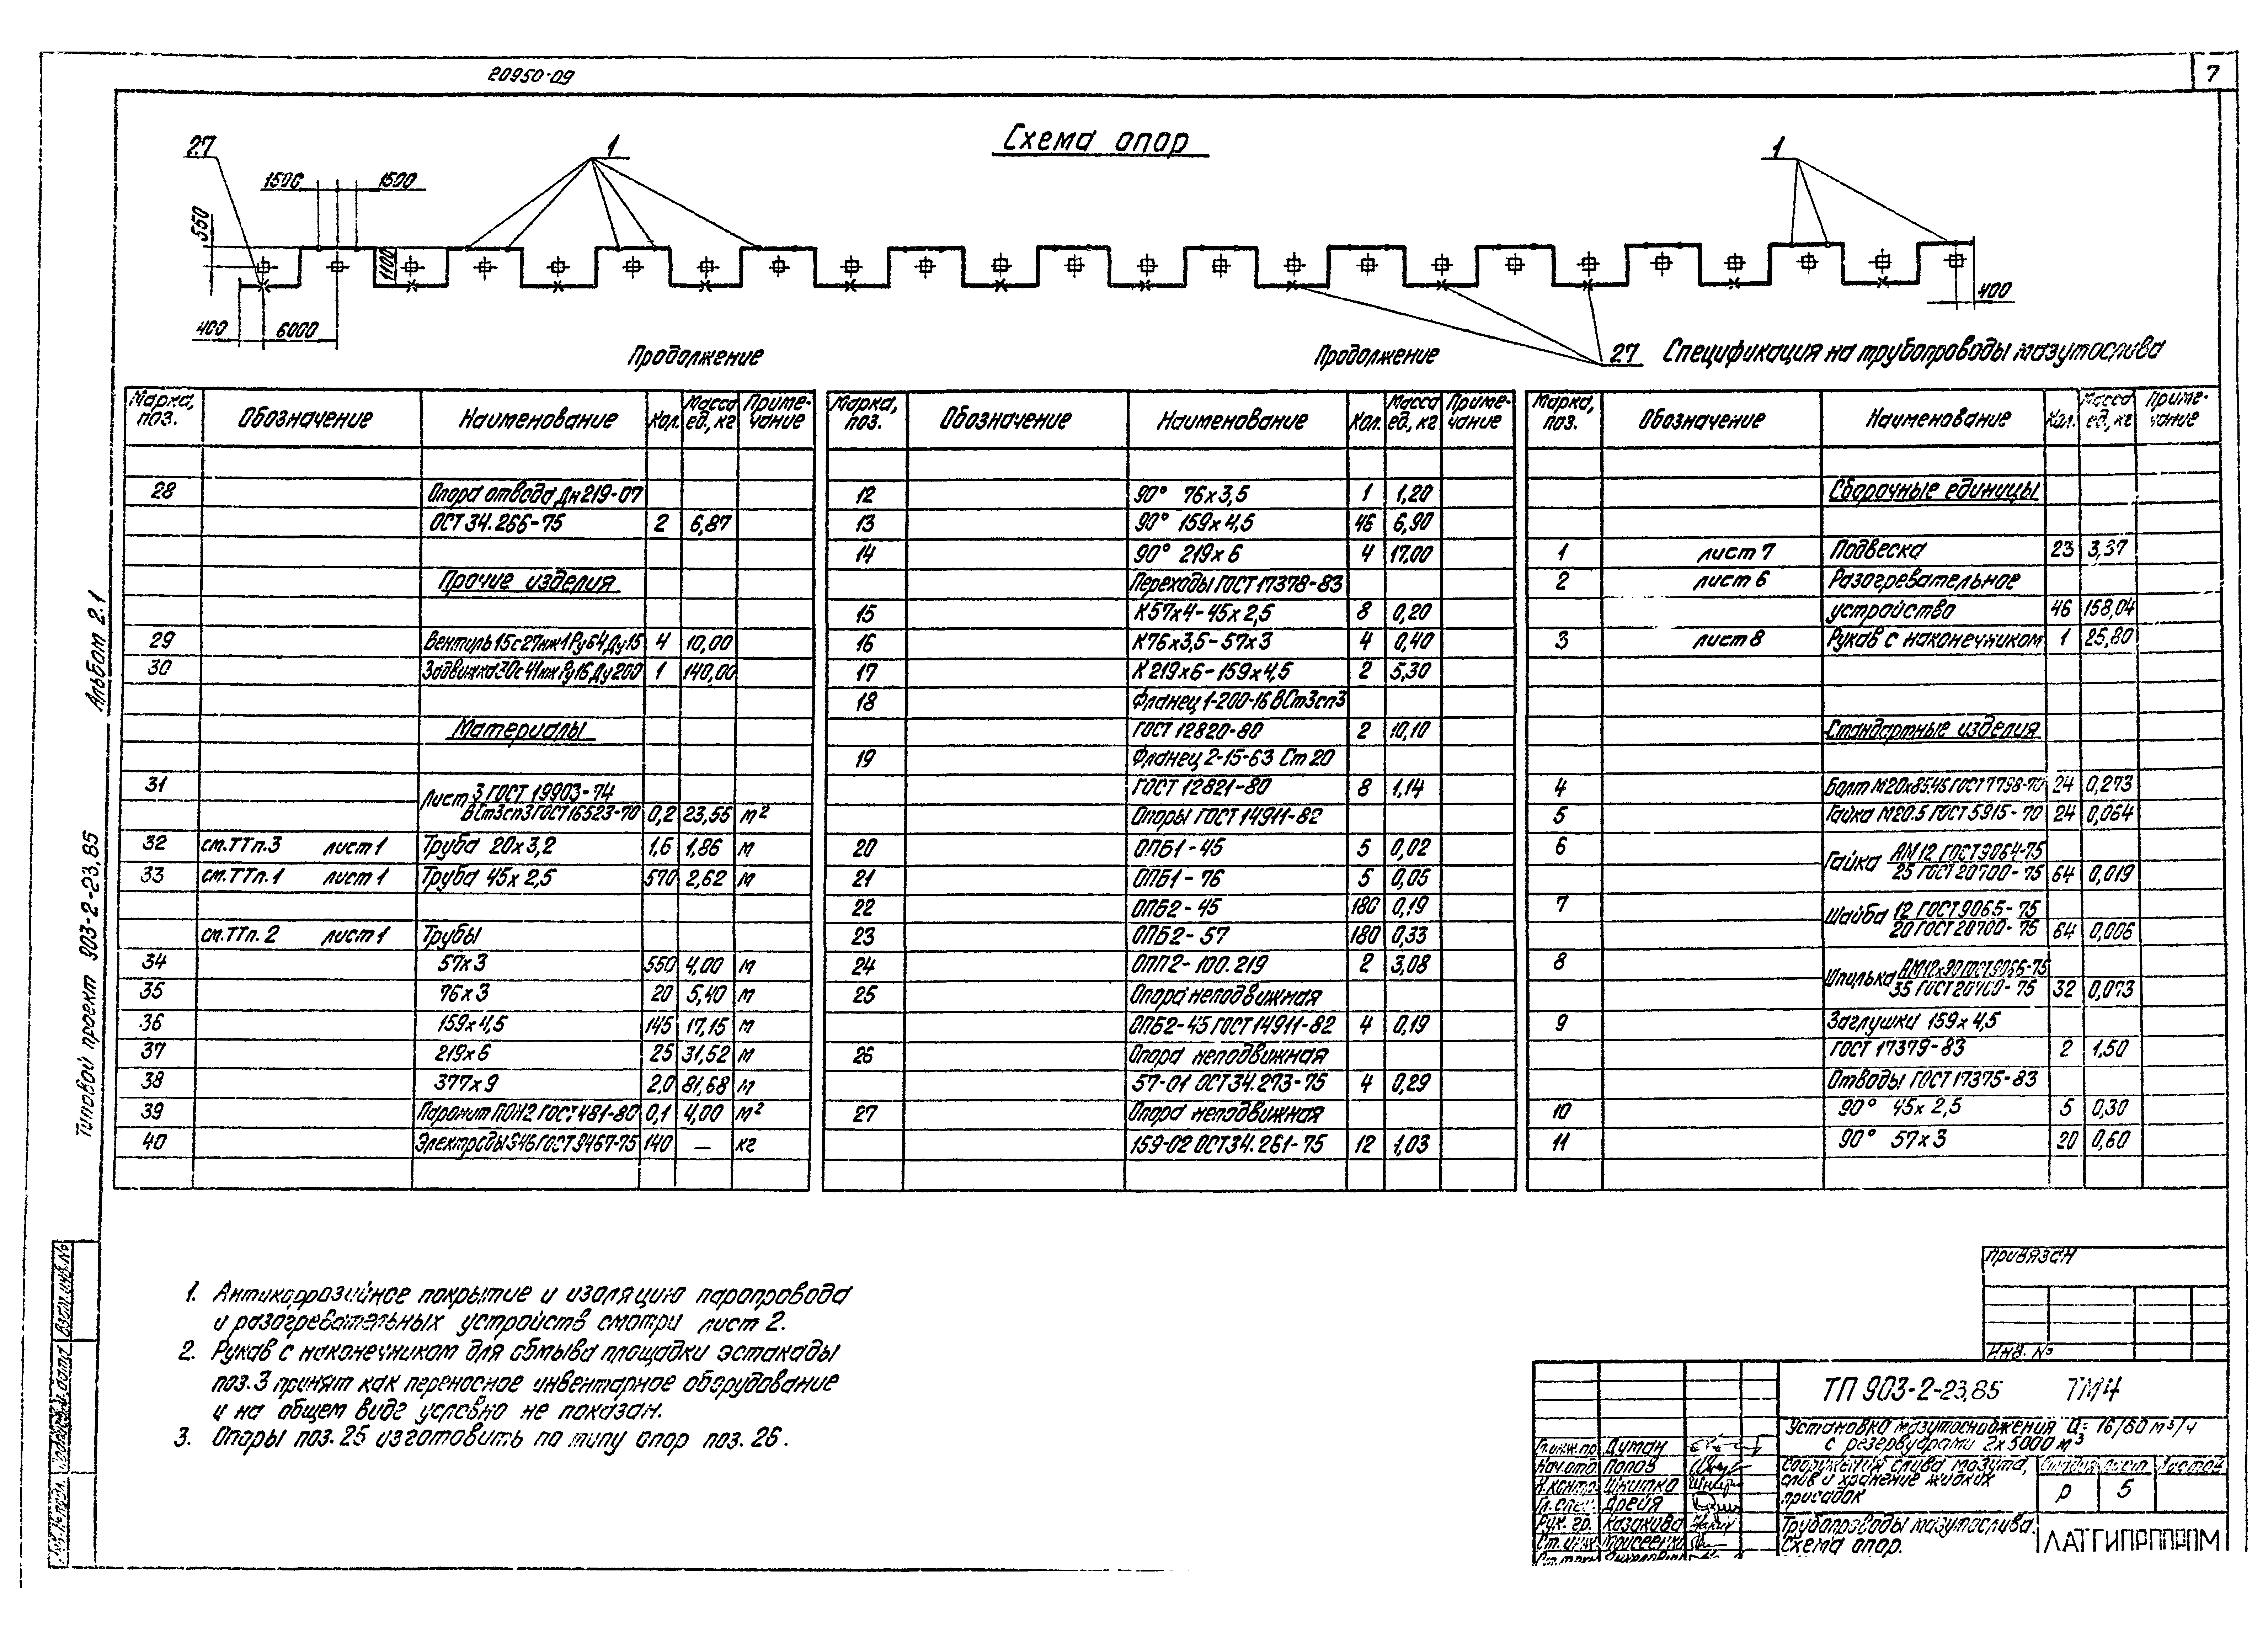 20950-09
7
Схема опор
27
1500
1500
1
1
550
1100
400
6000
400
27
Продолжение
Продолжение
Спецификация на трубопроводы мазутослива
Марка, поз. Обозначение Наименование Кол. Масса ед, кг Приме-чание
28 Опора отвода Дн219-07
ОСТ 34.266-75 2 6,87
Прочие изделия
29 Вентиль 15с27нж1 Ру64 Ду15 4 10,00
30 Задвижка 30с41нж Ру16 Ду200 1 140,00
Материалы
31 Лист 3 ГОСТ 19903-74
ВСт3сп3 ГОСТ 16523-70 0,2 23,55 м²
32 см.ТТп.3 лист 1 Труба 20х3,2 1,6 1,86 м
33 см.ТТп.1 лист 1 Труба 45х2,5 570 2,62 м
см.ТТп.2 лист 1 Трубы
34 57х3 550 4,00 м
35 76х3 20 5,40 м
36 159х4,5 145 17,15 м
37 219х6 25 31,52 м
38 377х9 2,0 81,68 м
39 Паронит ПОН2 ГОСТ 481-80 0,1 4,00 м²
40 Электроды Э46 ГОСТ 9467-75 140 — кг
Марка, поз. Обозначение Наименование Кол. Масса ед, кг Приме-чание
12 90° 76х3,5 1 1,20
13 90° 159х4,5 46 6,90
14 90° 219х6 4 17,00
Переходы ГОСТ 17378-83
15 К57х4-45х2,5 8 0,20
16 К76х3,5-57х3 4 0,40
17 К219х6-159х4,5 2 5,30
18 Фланец 1-200-16 ВСт3сп3
ГОСТ 12820-80 2 10,10
19 Фланец 2-15-63 Ст 20
ГОСТ 12821-80 8 1,14
Опоры ГОСТ 14911-82
20 ОПБ1-45 5 0,02
21 ОПБ1-76 5 0,05
22 ОПБ2-45 180 0,19
23 ОПБ2-57 180 0,33
24 ОПП2-100.219 2 3,08
25 Опора неподвижная
ОПБ2-45 ГОСТ 14911-82 4 0,19
26 Опора неподвижная
57-01 ОСТ 34.273-75 4 0,29
27 Опора неподвижная
159-02 ОСТ 34.261-75 12 1,03
Марка, поз. Обозначение Наименование Кол. Масса ед, кг Приме-чание
Сборочные единицы
1 лист 7 Подвеска 23 3,37
2 лист 6 Разогревательное
устройство 46 158,04
3 лист 8 Рукав с наконечником 1 25,80
Стандартные изделия
4 Болт М20х85.46 ГОСТ 7798-70 24 0,273
5 Гайка М20.5 ГОСТ 5915-70 24 0,064
6 Гайка АМ12 ГОСТ 9064-75
25 ГОСТ 20700-75 64 0,019
7 Шайба 12 ГОСТ 9065-75
20 ГОСТ 20700-75 64 0,006
8 Шпилька АМ12х90 ГОСТ 9066-75
35 ГОСТ 20700-75 32 0,073
9 Заглушки 159х4,5
ГОСТ 17379-83 2 1,50
Отводы ГОСТ 17375-83
10 90° 45х2,5 5 0,30
11 90° 57х3 20 0,60
1. Антикоррозийное покрытие и изоляцию паропровода
и разогревательных устройств смотри лист 2.
2. Рукав с наконечником для обмыва площадки эстакады
поз.3 принят как переносное инвентарное оборудование
и на общем виде условно не показан.
3. Опоры поз.25 изготовить по типу опор поз.26.
Альбом 2.1
Типовой проект 903-2-23.85
Взам.инв.№
Подпись и дата
Инв.№ подл.
Привязан
Инв. №
ТП 903-2-23.85 ТМ4
Установка мазутоснабжения Q=16/60 м³/ч
с резервуарами 2х5000 м³
Сооружения слива мазута,
слив и хранение жидких
присадок
Стадия Лист Листов
Р 5
Трубопроводы мазутослива.
Схема опор.
ЛАТГИПРОПРОМ
Гл.инж.пр. Думан
Нач.отд. Попов
Н.контр. Шнитко
Гл.спец. Дрейя
Рук. гр. Казакова
Ст.инж. Моисеенко